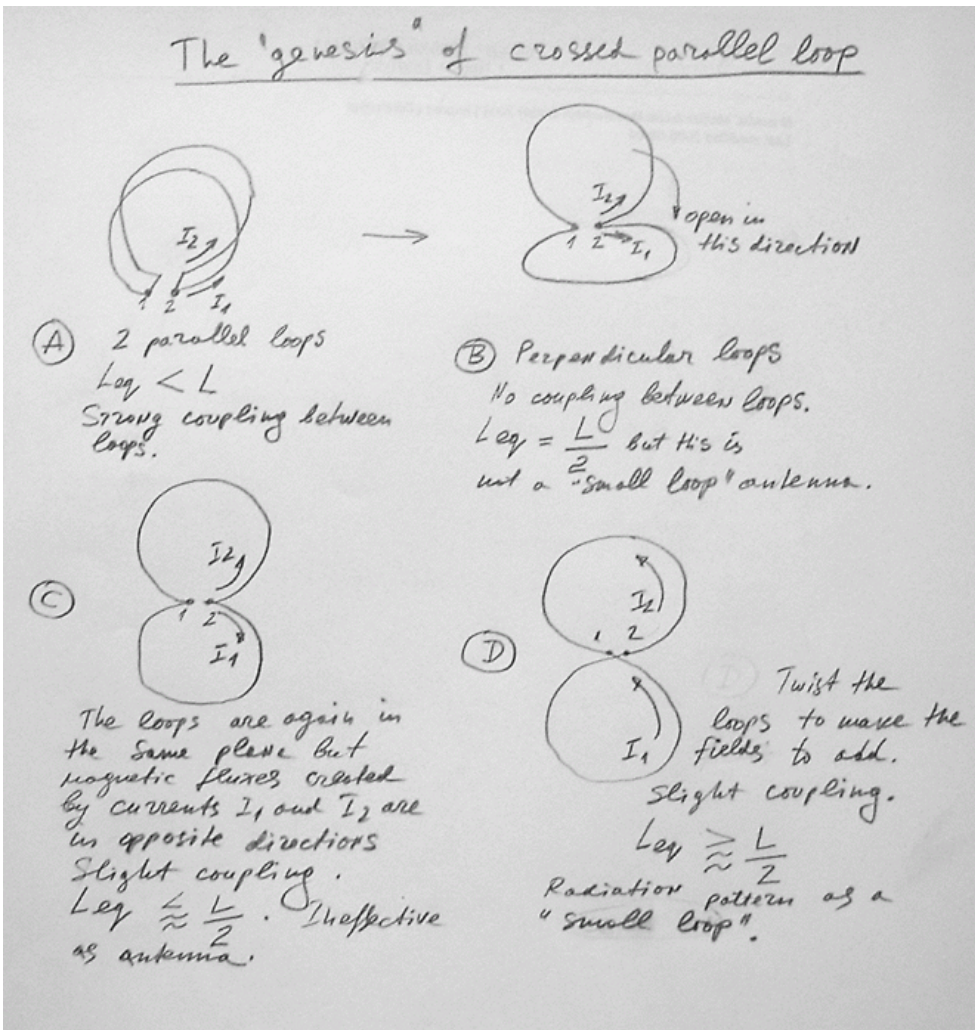 The "genesis" of crossed parallel loop
I2
1 2 I1
A
2 parallel loops
Leq < L
Strong coupling between
loops.
I2
1 2 I1
open in
this direction
B Perpendicular loops
No coupling between loops.
Leq = L/2 but this is
not a "small loop" antenna.
C
I2
1 2
I1
The loops are again in
the same plane but
magnetic fluxes created
by currents I1 and I2 are
in opposite directions
Slight coupling.
Leq ⪅ L/2. Ineffective
as antenna.
D
I2
1 2
I1
Twist the
loops to make the
fields to add.
Slight coupling.
Leq ⪆ L/2
Radiation pattern as a
"small loop".